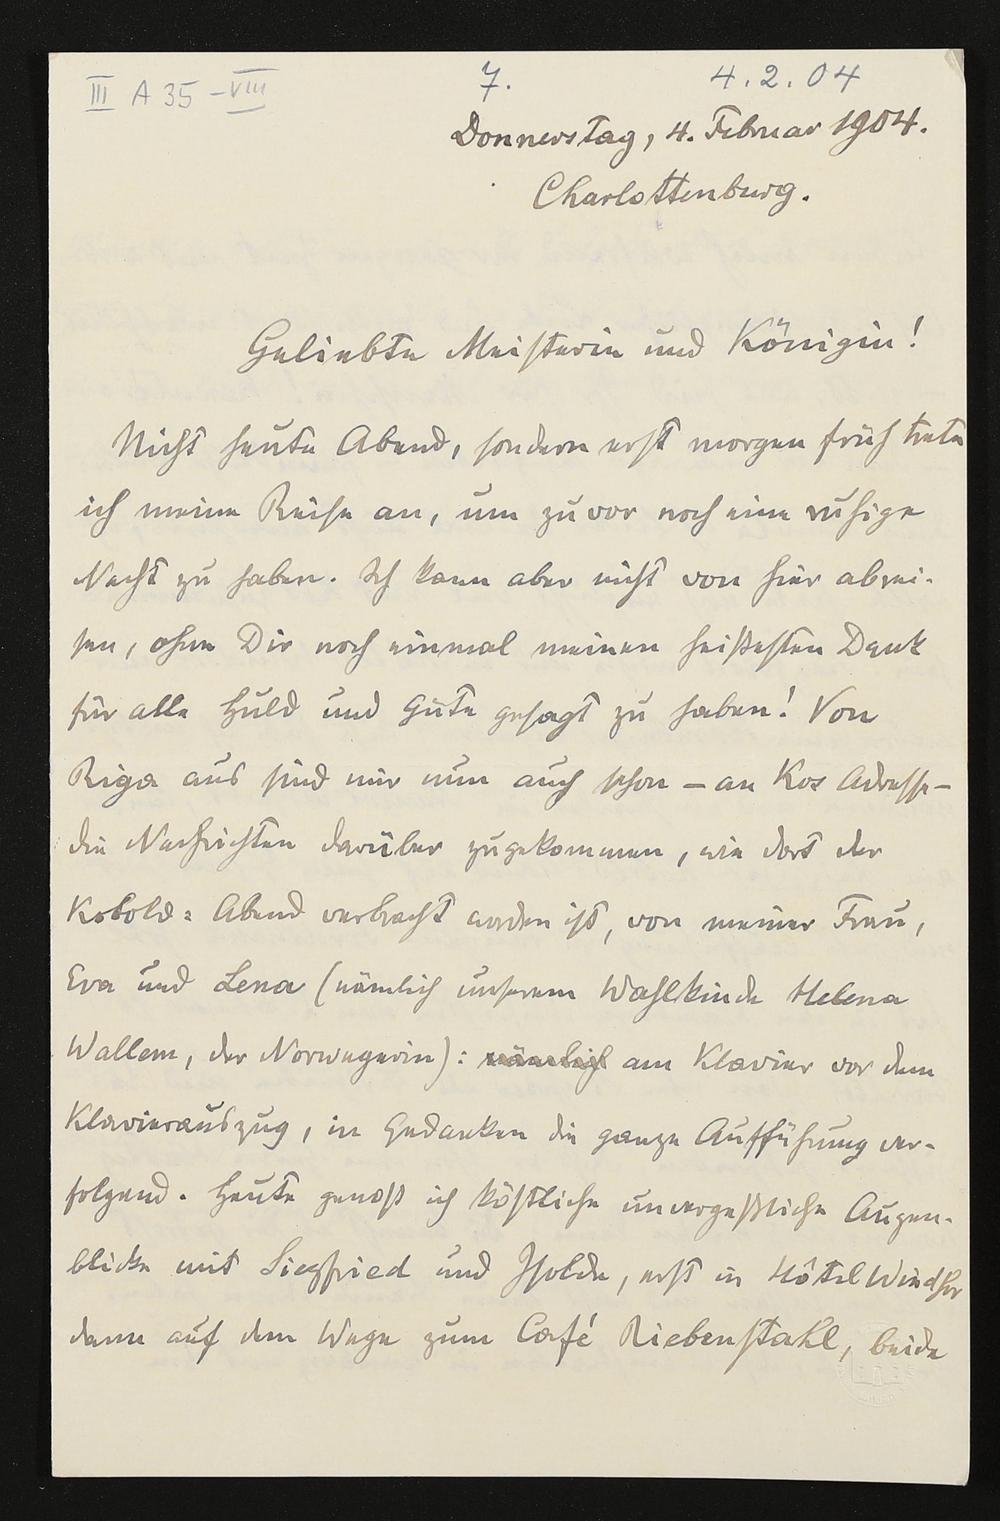 III A 35 – VIII
7.
4.2.04
Donnerstag, 4. Februar 1904.
Charlottenburg.
Geliebte Meisterin und Königin!
Nicht heute Abend, sondern erst morgen früh trete
ich meine Reise an, um zuvor noch eine ruhige
Nacht zu haben. Ich kann aber nicht von hier abrei-
sen, ohne Dir noch einmal meinen heißesten Dank
für alle Huld und Güte gesagt zu haben! Von
Riga aus sind mir nun auch schon – an Kos Adresse –
die Nachrichten darüber zugekommen, wie dort der
Kobold= Abend verbracht worden ist, von meiner Frau,
Eva und Lena (nämlich unserem Wahlkinde Helena
Wallem, der Norwegerin): nämlich am Klavier vor dem
Klavierauszug, in Gedanken die ganze Aufführung ver-
folgend. Heute genoß ich köstliche unvergeßliche Augen-
blicke mit Siegfried und Isolde, erst in Hôtel Windsor
dann auf dem Wege zum Café Riebenstahl, beide